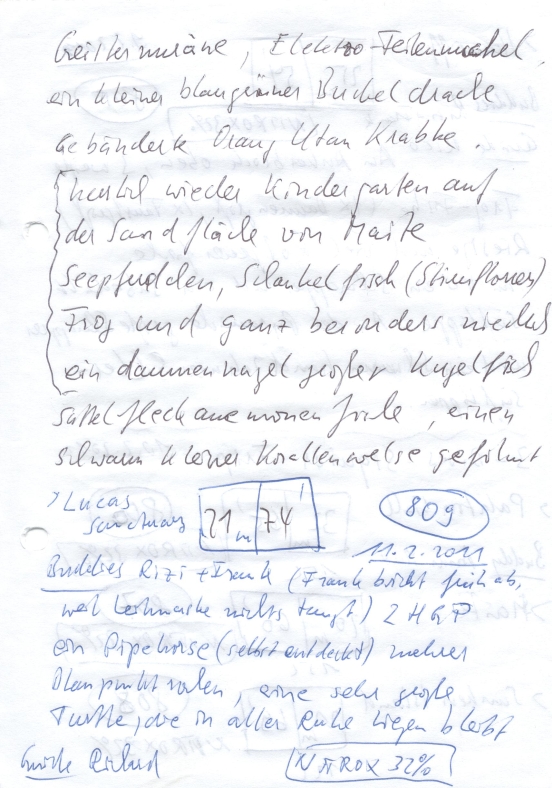 Geistermuräne, Elektro-Feilenmuschel,
ein kleiner blaugrüner Buckeldrache
Gebänderte Orang Utan Krabbe.
wieder Kindergarten auf
der Sandfläche von Maite
Seepfudden, Schaukelfisch (Stirnflosser)
Frog und ganz besonders niedlich
ein daumennagel großer Kugelfisch
Sattelfleckanemonenfische, einen
Schwarm kleiner Korallenwelse gefilmt
> Lucas
Sanctuary
21 m 74'
80g
11.2.2011
Buddies Rizi + Frank (Frank bricht früh ab,
weil Leihmaske nichts taugt) 2 H&P
ein Pipehorse (selbst entdeckt) mehrere
Blaupunktrochen, eine sehr große
Turtle, die in aller Ruhe liegen bleibt
Guide Richard
NITROX 32%